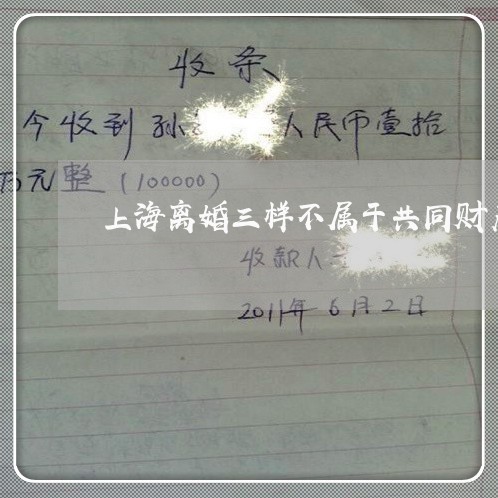 收条
今收到孙 人民币壹拾
万元整(100000)
上海离婚三样不属于共同财
收款人
2011年6月2日